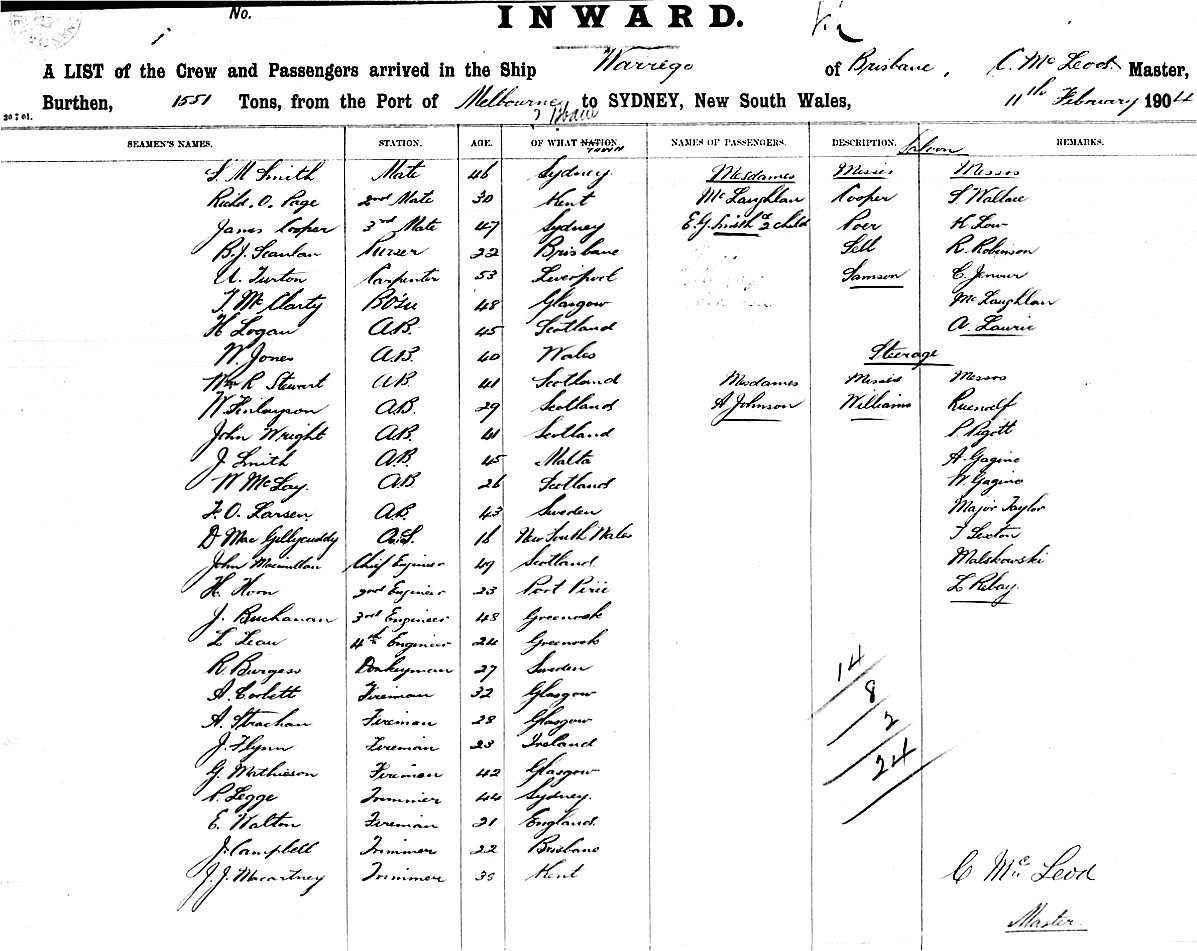 No.
INWARD.
A LIST of the Crew and Passengers arrived in the Ship Warrego of Brisbane, C. McLeod Master,
Burthen, 1551 Tons, from the Port of Melbourne to SYDNEY, New South Wales, 11th February 1904
20 7 01.
SEAMEN'S NAMES. STATION. AGE. OF WHAT NATION NAMES OF PASSENGERS. DESCRIPTION. REMARKS.
Town Saloon
S M Smith Mate 46 Sydney Mesdames Misses Messrs
Richd. O. Page 2nd Mate 30 Kent McLaughlan Cooper S Wallace
James Cooper 3rd Mate 47 Sydney E. G. Smith & 2 child Poer K Low
B. J. Scanlan Purser 22 Brisbane Sell R. Robinson
U. Turton Carpenter 53 Liverpool Samson C. Jenour
T. McClarty BO'su 48 Glasgow McLaughlan
H Logan A.B. 45 Scotland A. Laurie
W. Jones A.B. 40 Wales Steerage
Wm R Stewart A.B. 41 Scotland Mesdames Misses Messrs
W Finlayson A.B. 29 Scotland A Johnson Williams
John Wright A.B. 41 Scotland P. Pigott
J. Smith A.B. 45 Malta A. Gagino
W McLay. A.B. 26 Scotland W. Gagino
F. O. Larsen A.B. 43 Sweden Major Taylor
D MacGillycuddy O.S. 16 New South Wales T Sexton
John Macmillan Chief Engineer 49 Scotland Malskowski
H. Horn 2nd Engineer 23 Port Pirie L Ribay.
J. Buchanan 3rd Engineer 48 Greenock
L Lean 4th Engineer 24 Greenock
R. Burgess Donkeyman 27 Sweden 14
A. Corbett Fireman 32 Glasgow 8
A. Strachan Fireman 28 Glasgow 2
J. Flynn Fireman 23 Ireland 24
G. Mathieson Fireman 42 Glasgow
P. Legge Trimmer 44 Sydney.
E. Walton Fireman 21 England.
J. Campbell Trimmer 22 Brisbane
J. J. Macartney Trimmer Kent C McLeod
Master